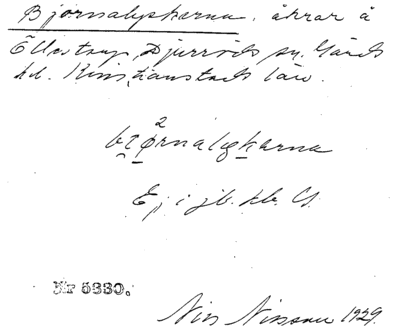 Björnalyckarna, åkrar å
Ellestrup, Djurröds sn. Gärds
hd. Kristianstads län.
bjørnalykarna
Ej i jb. kb. GS.
Nr 5330.
Nils Nilsson 1929.